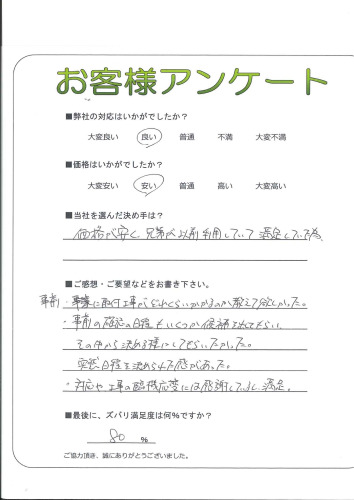 お客様アンケート
■弊社の対応はいかがでしたか？
大変良い 良い 普通 不満 大変不満
■価格はいかがでしたか？
大変安い 安い 普通 高い 大変高い
■当社を選んだ決め手は？
価格が安く、兄弟が以前利用していて満足していた為
■ご感想・ご要望などをお書き下さい。
事前に取付工事がどれくらいかかるのか教えて欲しかった。
・事前の確認の日程もいくつか候補を出してもらい
その中から決める様にしてもらいたかった。
突然日程を決められた感があった。
・対応や工事の臨機応変には感謝していますし、満足。
■最後に、ズバリ満足度は何%ですか？
80 %
ご協力頂き、誠にありがとうございました。